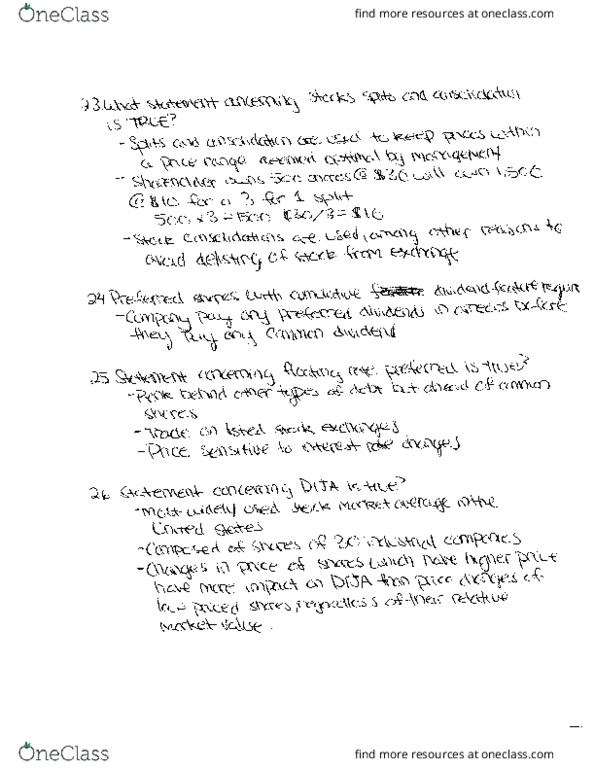 OneClass
find more resources at oneclass.com
23. What statement concerning stocks splits and consolidation
is TRUE?
- Splits and consolidation are used to keep prices within
a price range deemed optimal by management
- Shareholder owns 500 shares @ $30 will own 1,500
@ $10 for a 3 for 1 split
500 x 3 = 1500 $30/3 = $10
- Stock consolidations are used, among other reasons to
avoid delisting of stock from exchange
24 Preferred shares with cumulative dividend feature require
- Company pay any preferred dividends in arrears before
they pay any common dividend
25 Statement concerning floating rate preferred is true?
- Rank behind other types of debt but ahead of common
shares
- Trade on listed stock exchanges
- Price sensitive to interest rate changes
26 Statement concerning DIJA is true?
- Most widely used stock market average in the
United States
- Composed of shares of 30 industrial companies
- Changes in price of shares which have higher price
have more impact on DIJA than price changes of
low priced shares, regardless of their relative
market value.
OneClass
find more resources at oneclass.com